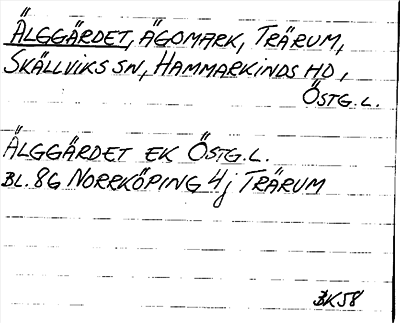 ÄLGGÄRDET, ÄGOMARK, TRÄRUM,
SKÄLLVIKS SN, HAMMARKINDS HD,
ÖSTG.L.
ÄLGGÄRDET EK ÖSTG.L.
BL. 8G NORRKÖPING 4j TRÄRUM
BK58